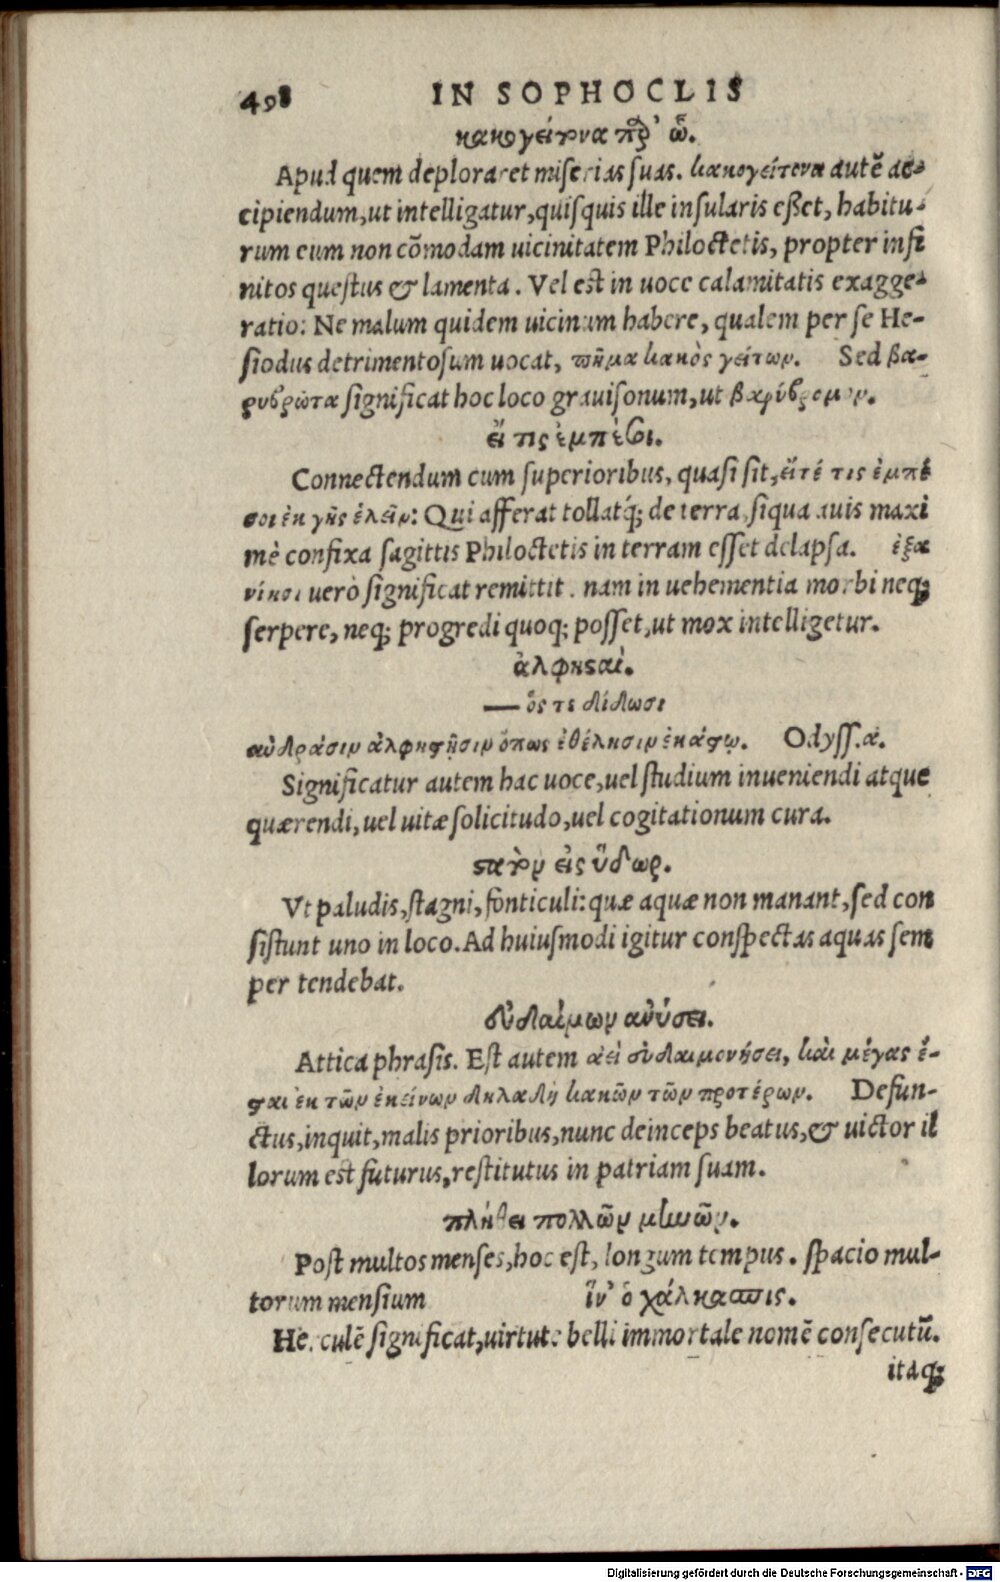 498 IN SOPHOCLIS
κακογείτονα παρ' ᾧ.
Apud quem deploraret miserias suas. κακογείτονα autẽ ac-
cipiendum, ut intelligatur, quisquis ille insularis eßet, habitu-
rum eum non cõmodam uicinitatem Philoctetis, propter infi
nitos questus & lamenta. Vel est in uoce calamitatis exagge-
ratio: Ne malum quidem uicinum habere, qualem per se He-
siodus detrimentosum uocat, πῆμα κακὸς γείτων. Sed βα-
ρυβρῶτα significat hoc loco grauisonum, ut βαρύβρομον.
εἴ τις ἐμπέσοι.
Connectendum cum superioribus, quasi sit, εἴτέ τις ἐμπέ
σοι ἐκ γῆς ἑλεῖν: Qui afferat tollatq́; de terra, siqua auis maxi
mè confixa sagittis Philoctetis in terram esset delapsa. ἐξα
νίησι uerò significat remittit. nam in uehementia morbi neq;
serpere, neq; progredi quoq; posset, ut mox intelligetur.
ἀλφησαί.
— ὅς τε δίδωσι
ἀνδράσιν ἀλφηστῇσιν ὅπως ἐθέλησιν ἑκάστῳ. Odyss.α.
Significatur autem hac uoce, uel studium inueniendi atque
quærendi, uel uitæ solicitudo, uel cogitationum cura.
στατὸν εἰς ὕδωρ.
Vt paludis, stagni, fonticuli: quæ aquæ non manant, sed con
sistunt uno in loco. Ad huiusmodi igitur conspectas aquas sem
per tendebat.
εὐδαίμων ἀνύσει.
Attica phrasis. Est autem ἀεὶ εὐδαιμονήσει, καὶ μέγας ἔ-
σται ἐκ τῶν ἐκείνων δηλαδὴ κακῶν τῶν προτέρων. Defun-
ctus, inquit, malis prioribus, nunc deinceps beatus, & uictor il
lorum est futurus, restitutus in patriam suam.
πλήθει πολλῶν μηνῶν.
Post multos menses, hoc est, longum tempus. spacio mul-
torum mensium ἵν' ὁ χάλκασπις.
Herculẽ significat, uirtute belli immortale nomẽ consecutũ.
itaq;
Digitalisierung gefördert durch die Deutsche Forschungsgemeinschaft - DFG